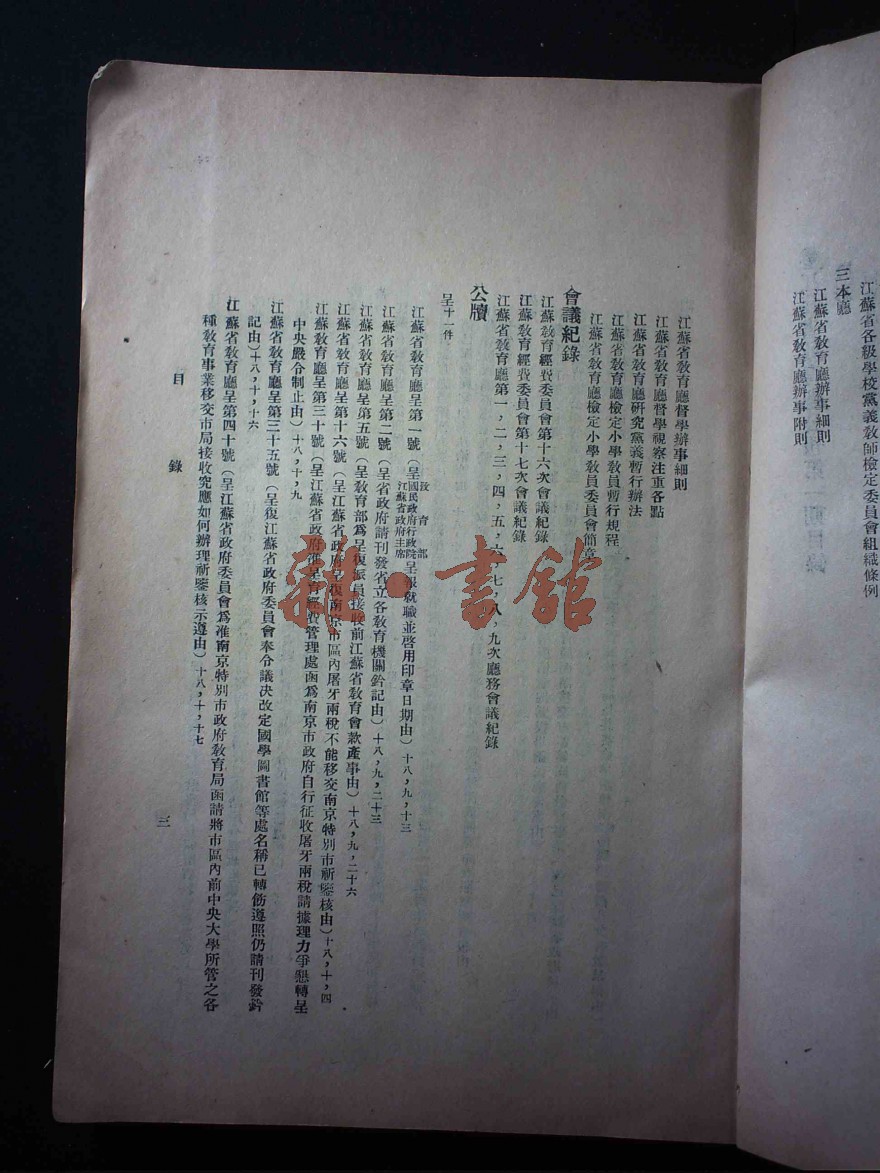 江蘇省各級學校黨義教師檢定委員會組織條例
三本廳
江蘇省教育廳辦事細則
江蘇省教育廳辦事附則
江蘇省教育廳督學辦事細則
江蘇省教育廳督學視察注重各點
江蘇省教育廳研究黨義暫行辦法
江蘇省教育廳檢定小學教員暫行規程
江蘇省教育廳檢定小學教員委員會簡章
會議紀錄
江蘇教育經費委員會第十六次會議紀錄
江蘇教育經費委員會第十七次會議紀錄
江蘇省教育廳第一，二，三，四，五，六，七，八，九次廳務會議紀錄
公牘
呈十一件
江蘇省教育廳呈第一號（呈教育部國民政府行政院江蘇省政府主席呈報就職並啓用印章日期由）十八，九，十三
江蘇省教育廳呈第二號（呈省政府請刊發省立各教育機關鈐記由）十八，九，二十三
江蘇省教育廳呈第五號（呈教育部爲呈復派員接收前江蘇省教育會款產事由）十八，九，二十六
江蘇省教育廳呈第十六號（呈江蘇省政府呈復南京市區內屠牙兩稅不能移交南京特別市祈鑒核由）十八，十，四
江蘇教育廳呈第三十號（呈江蘇省政府准呈育經費管理處函爲南京市政府自行征收屠牙兩稅請據理力爭懇轉呈
中央嚴令制止由）十八，十，九
江蘇省教育廳呈第三十五號（呈復江蘇省政府委員會奉令議決改定國學圖書館等處名稱已轉飭遵照仍請刊發鈐
記由）十八，十，十六
江蘇省教育廳呈第四十號（呈江蘇省政府委員會爲准南京特別市政府教育局函請將市區內前中央大學所管之各
種教育事業移交市局接收究應如何辦理祈鑒核示遵由）十八，十，十七
目錄
三
新·書館